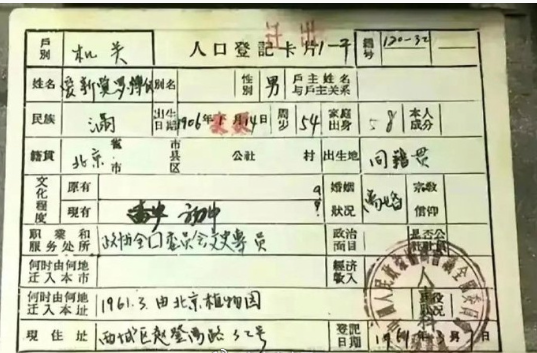 迁出
戶別 机关 人口登記卡片1-子 編号 120-32
姓名 爱新觉罗溥仪 別名 性別 男 戶主姓名与戶主关系
民族 满 出生日期 1906年 月14日 周岁 54 家庭出身 本人成分
籍貫 北京 省市 市县区 公社 村 出生地 同籍贯
文化程度 原有 婚姻狀况 离婚 宗教信仰
現有 初中
职業和服务处所 政协全国委员会文史专员 政治面目
何时由何地迁入本市 經济收入
何时由何地迁入本址 1961.3.由北京植物园
現住址 西城区赵登禹路32号 登記日期
人事科